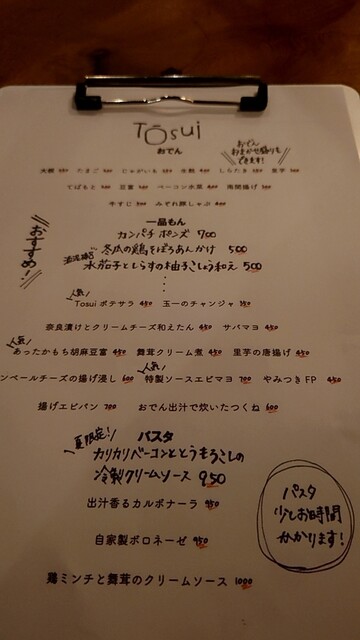 Tōsui
おでん
おでん
おまかせ盛りも
できます!
大根 たまご じゃがいも しらたき 里芋
てばもと 豆富 ベーコン水菜 南関揚げ
牛すじ みぞれ豚しゃぶ
おすすめ!
一品もん
カンパチ ポンズ 700
冬瓜の鶏そぼろあんかけ 500
水茄子としらすの柚子こしょう和え 500
人気!
Tosui ポテサラ 450 玉一のチャンジャ 350
奈良漬けとクリームチーズ和えたん 450 サバマヨ 450
人気!
あったかもち胡麻豆富 450 舞茸クリーム煮 450 里芋の唐揚げ 450
人気!
ンベールチーズの揚げ浸し 600 特製ソースエビマヨ 700 やみつきFP 450
揚げエビパン 700 おでん出汁で炊いたつくね 600
夏限定! パスタ
カリカリベーコンととうもろこしの
冷製クリームソース 950
出汁香るカルボナーラ 950
自家製ボロネーゼ 950
鶏ミンチと舞茸のクリームソース 1000
パスタ
少しお時間
かかります!